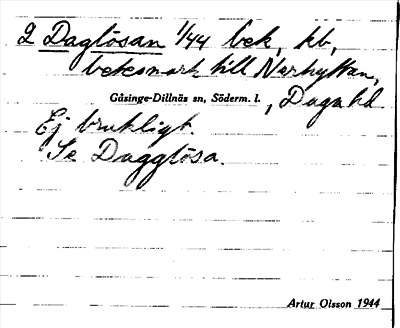 2 Daglösan 1/44 bek, kb,
betesmark till Nerhyttan,
Gåsinge-Dillnäs sn, Söderm. l., Daga hd
Ej brukligt.
Se Dagglösa.
Artur Olsson 1944